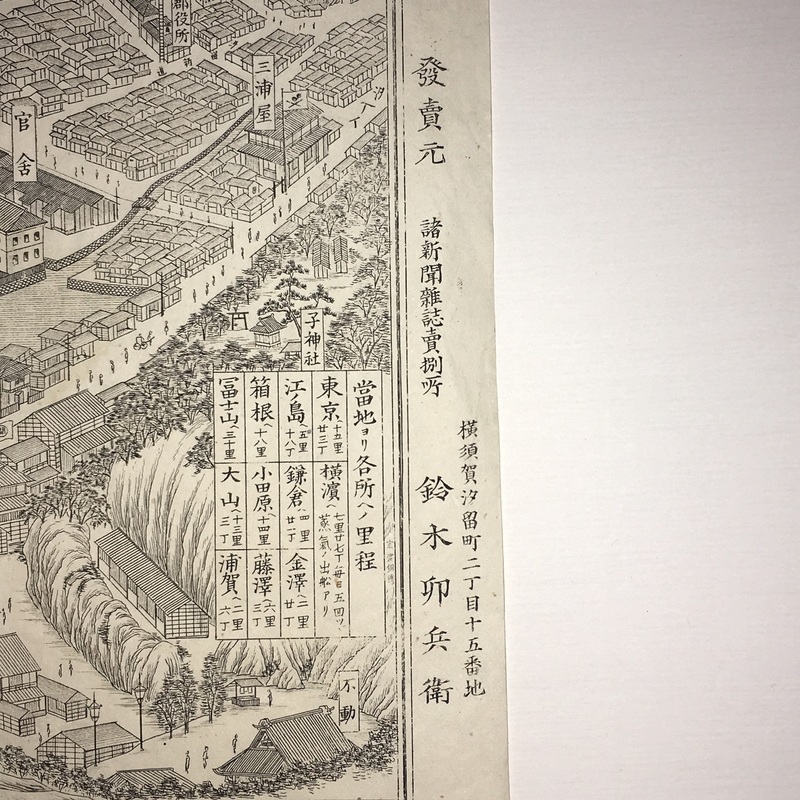 發賣元 諸新聞雜誌賣捌所 鈴木卯兵衛
橫須賀汐留町二丁目十五番地
郡役所
三浦屋
汐入丁
官舍
子神社
當地ヨリ各所ヘノ里程
東京ヘ十五里廿三丁
橫濱ヘ七里廿七丁每日五回ツヽ蒸氣ノ出船アリ
江ノ島ヘ五里十八丁
鎌倉ヘ四里廿一丁
金澤ヘ二里廿丁
箱根ヘ十八里
小田原ヘ十四里
藤澤ヘ六里三丁
冨士山ヘ三十里
大山ヘ十三里三丁
浦賀ヘ二里六丁
不動